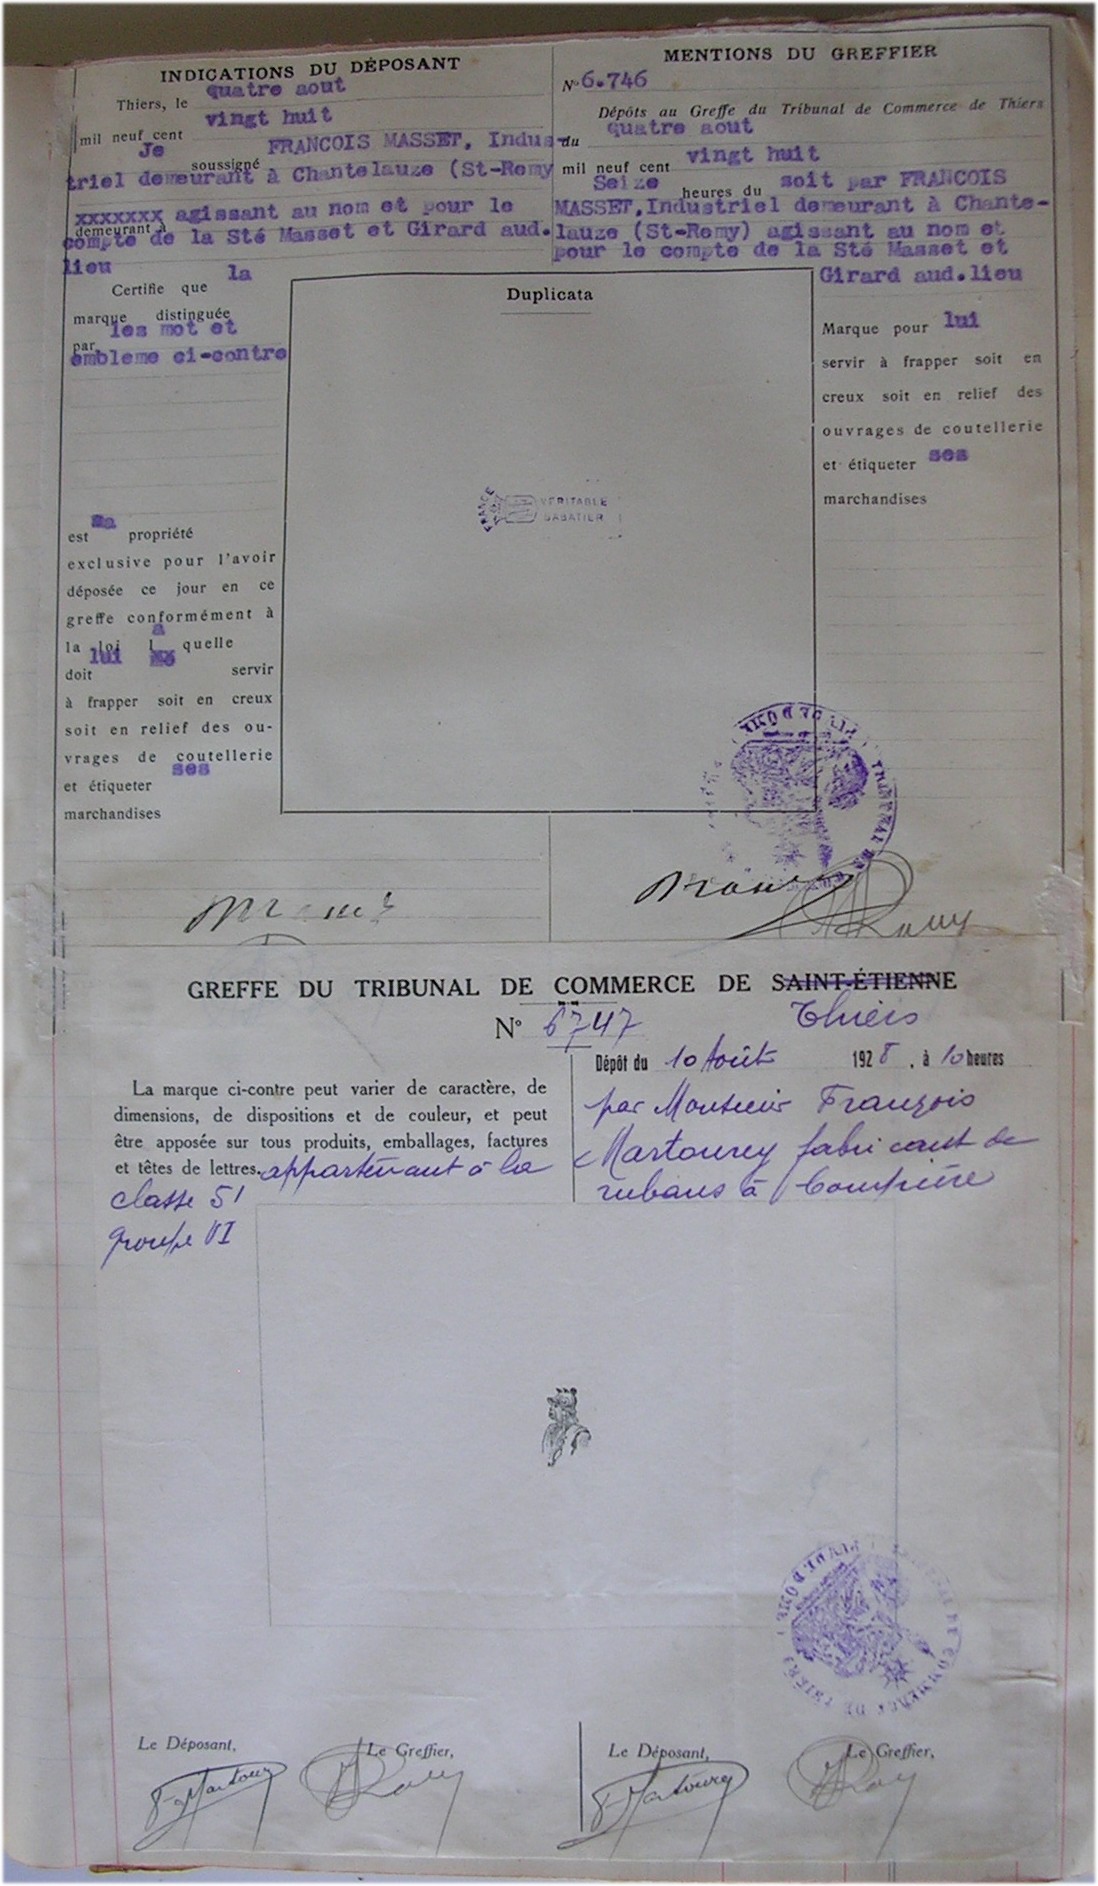 INDICATIONS DU DÉPOSANT
Thiers, le quatre aout
mil neuf cent vingt huit
Je soussigné FRANCOIS MASSET, Indus-
triel demeurant à Chantelauze (St-Remy
demeurant à xxxxxxx agissant au nom et pour le
compte de la Sté Masset et Girard aud.
lieu
Certifie que la
marque distinguée
par les mot et
embleme ci-contre
est sa propriété
exclusive pour l'avoir
déposée ce jour en ce
greffe conformément à
la loi laquelle
doit lui servir
à frapper soit en creux
soit en relief des ou-
vrages de coutellerie
et étiqueter ses
marchandises
MENTIONS DU GREFFIER
N° 6.746
Dépôts au Greffe du Tribunal de Commerce de Thiers
du quatre aout
mil neuf cent vingt huit
Seize heures du soit par FRANCOIS
MASSET,Industriel demeurant à Chante-
lauze (St-Remy) agissant au nom et
pour le compte de la Sté Masset et
Girard aud.lieu
Marque pour lui
servir à frapper soit en
creux soit en relief des
ouvrages de coutellerie
et étiqueter ses
marchandises
Duplicata
FRANCE
VERITABLE
SABATIER
GREFFE DU TRIBUNAL DE COMMERCE DE SAINT-ÉTIENNE
Thiers
N° 6747
La marque ci-contre peut varier de caractère, de
dimensions, de dispositions et de couleur, et peut
être apposée sur tous produits, emballages, factures
et têtes de lettres. appartenant à la
classe 51
groupe VI
Dépôt du 10 Août 1928, à 10 heures
par Monsieur François
Martourey fabricant de
rubans à Courpière
TRIBUNAL DE COMMERCE DE THIERS
Le Déposant,
Le Greffier,
F. Martourey
Le Déposant,
Le Greffier,
F. Martourey